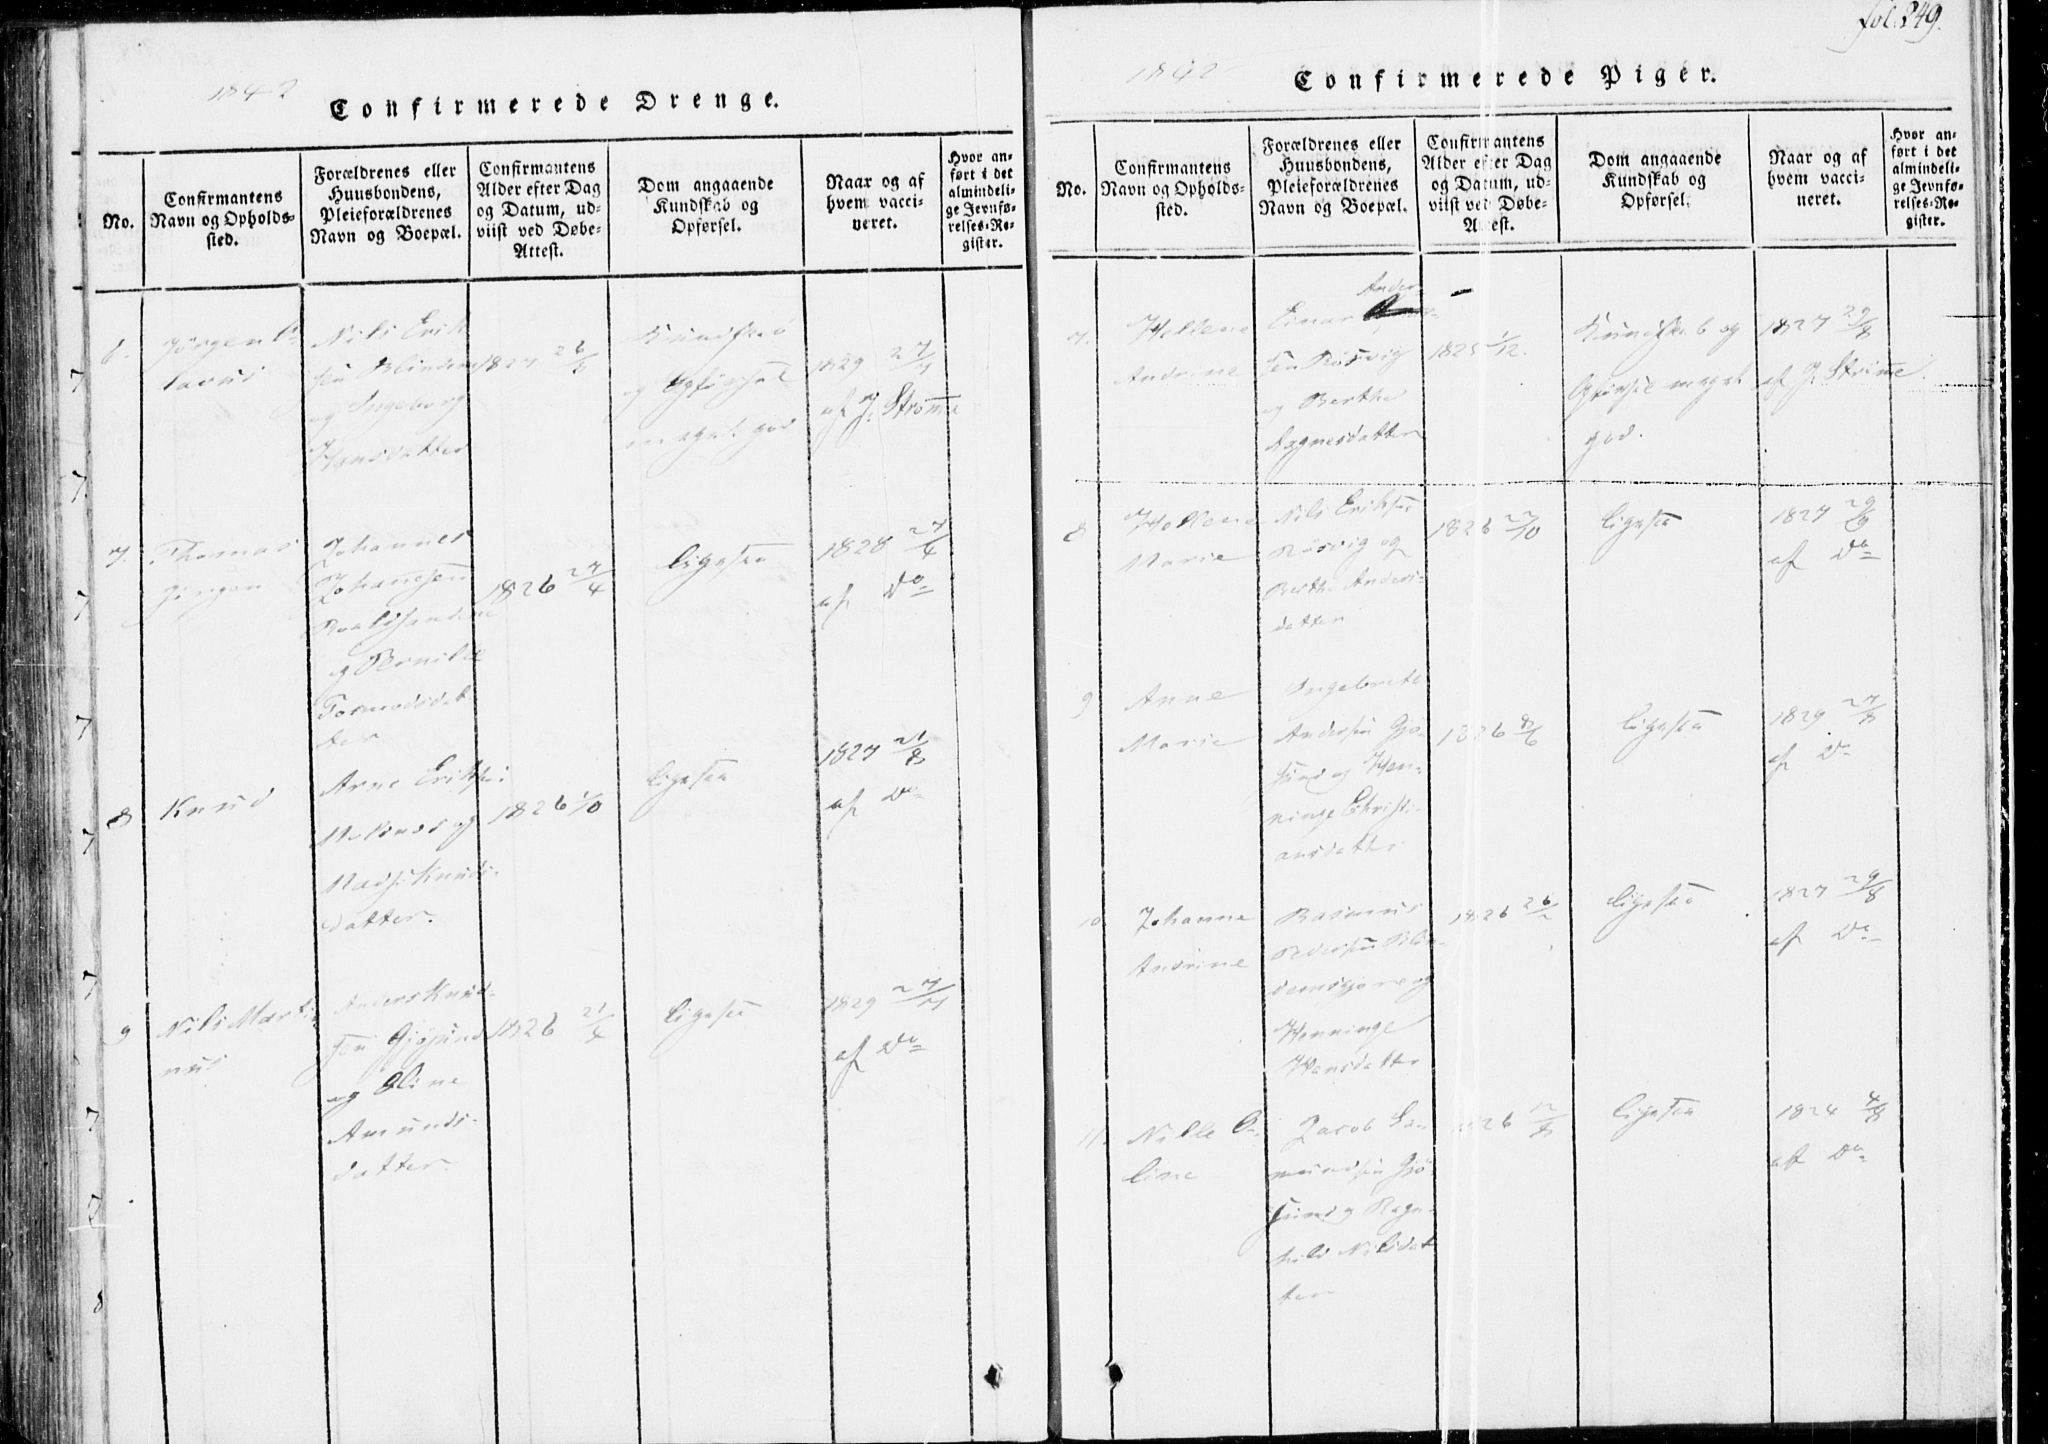 1842
Confirmerede Drenge.
No.
Confirmantens
Navn og Opholds-
sted.
Forældrenes eller
Huusbondens,
Pleieforældrenes
Navn og Boepæl.
Confirmantens
Alder efter Dag
og Datum, ud-
viist ved Døbe-
Attest.
Dom angaaende
Kundskab og
Opførsel.
Naar og af
hvem vacci-
neret.
Hvor an-
ført i det
almindeli-
ge Jevnfø-
relses-Re-
gister.
6.
Jörgen O-
lavus
Nils Erik-
sen
og Ingeborg
Hansdatter
1827 26/8
Kundskab
og Opførsel
meget god
1829 27/7
af J. Strømme
7.
Thomas
Jörgen
Johannes
Johannesen
og
Tormodsdat
ter
1826 27/4
ligesaa
1828 27/4
af Do
8
Knud
Arne Eriksen
og
Knuds-
datter.
1826 1/10
ligesaa
1827 21/8
af Do
9
Nils Marti-
nus
Anders Knud-
sen Gjösund
og Oline
Amunds-
datter.
1826 21/4
ligesaa
1829 27/7
af Do
fol. 249.
1842
Confirmerede Piger.
No.
Confirmantens
Navn og Opholds-
sted.
Forældrenes eller
Huusbondens,
Pleieforældrenes
Navn og Boepæl.
Confirmantens
Alder efter Dag
og Datum, ud-
viist ved Døbe-
Attest.
Dom angaaende
Kundskab og
Opførsel.
Naar og af
hvem vacci-
neret.
Hvor an-
ført i det
almindeli-
ge Jevnfø-
relses-Re-
gister.
7.
Hellene
Andrine
Ander-
Einar
sen Rösvig
og Berthe
datter
1825 1/12.
Kundskab og
Opførsel meget
god.
1827 29/8
af J. Strømme
8
Hellene
Marie
Nils Eriksen
Rösvig og
Berthe Anders-
datter
1826 22/10
ligesaa
1827 29/8
af Do
9
Anne
Marie
Ingebregt
Andersen Gjö-
sund og Hen-
ninge Christi-
ansdatter
1826 8/6
ligesaa
1829 27/8
af Do
10
Johanne
Andrine
Rasmus
Pedersen Blin-
og
Henninge
Hansdatter
1826 26/2
ligesaa
1827 29/8
af Do
11.
Nille O-
line
Jacob
Gjö-
sund og Ragn-
hild Nilsdat
ter
1826 12/8
ligesaa
1824 4/8
af Do